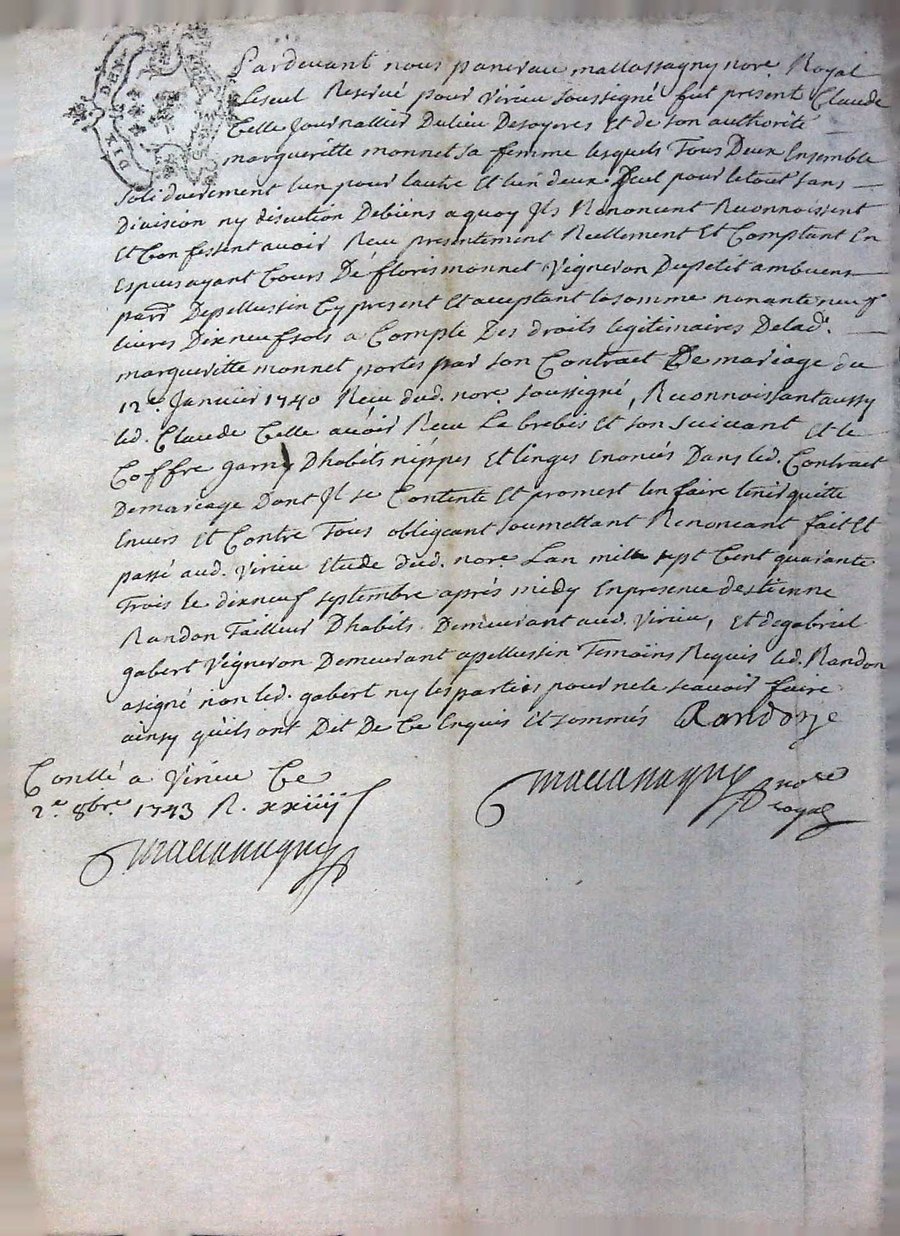 DIX DEN
Pardevant nous pancrau mallassagny nore. Royal
Leseul Reservé pour virieu soussigné fut present Claude
Celle Journallier Dulieu Desoyeres Et de son authorité
margueritte monnet sa femme lesquels Tous Deux Ensemble
soliduerement lun pour lautre Et lun deux Seul pour letout sans
Division ny discution Debiens aquoy Ils Renoncent Reconnoissent
Et Confessent avoir Receu presentement Reellement Et Comptant En
Especes ayant Cours De floris monnet Vigneron Dupetit ambuens
parr. Depellussin Cy present Et acceptant la somme nonante neuf
livres Dixneuf sols a Compte Des droits legitimaires Delad.
margueritte monnet portés par son Contract De mariage du
12e. Janvier 1740 Receu dud. nore soussigné, Reconnoissant aussy
led. Claude Celle avoir Receu La brebis Et son suivant Et le
Coffre garny Dhabits nippes Et linges Enoncés Dans led. Contract
Demariage Dont Il se Contente Et promest len faire tenir quitte
Envers Et Contre Tous obligeant soumettant Renonceant fait Et
passé aud. Virieu Etude dud. nore. Lan mille sept Cent quarante
Trois le dixneuf septembre après midy En presence destienne
Randon Tailleur Dhabits Demeurant aud. Virieu, Et de gabriel
gabert Vigneron Demeurant apellussin Temoins Requis led. Randon
a signé non led. gabert ny les parties pour ne le scavoir faire
ainsy quils ont Dit De Ce Enquis Et sommés Randon
Conllé a Virieu Ce
2e. 8bre. 1743 R. xxiiij s
nore
royal